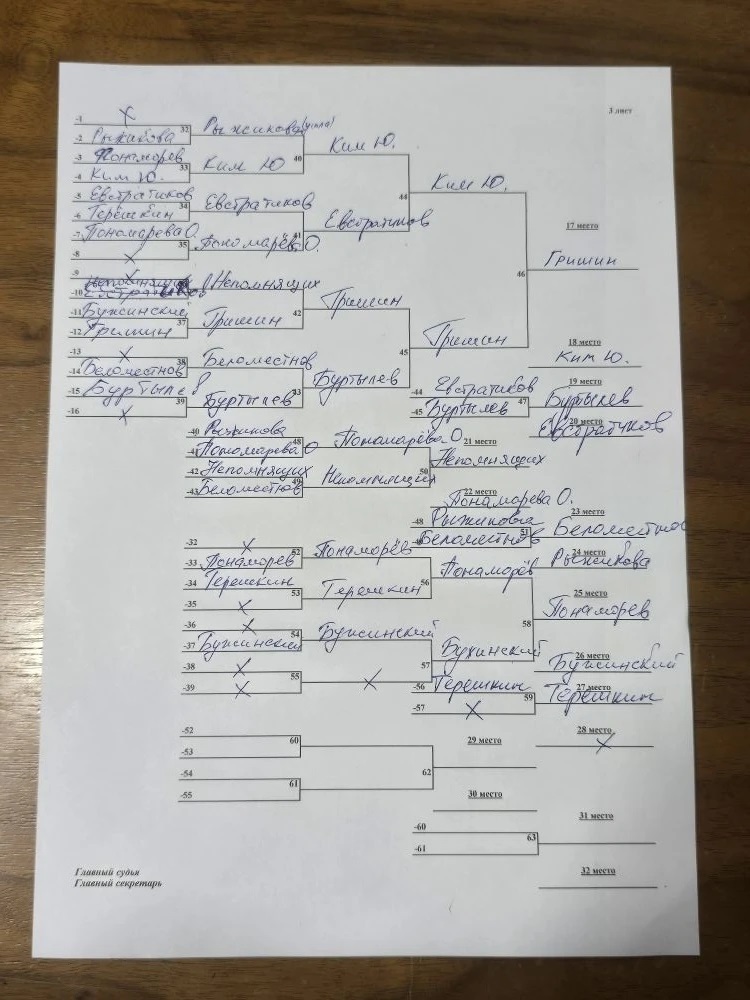 3 лист
-1 X
32 Рыжикова (ушла)
-2 Рыжикова
Ким Ю.
-3 Пономарёв
40
33 Ким Ю
-4 Ким Ю.
Ким Ю.
44
-5 Евстратиков
34 Евстратиков
-6 Терёшкин
Евстратиков
17 место
-7 Пономарева О.
41
35 Пономарёва О.
-8 X
Гришин
46
-9 X
Непомнящих
-10
-11 Бужинский
Гришин
42
37 Гришин
-12 Гришин
Гришин
18 место
45
Ким Ю.
-13 X
38 Беломестнов
-14 Беломестнов
19 место
Буртылев
-44 Евстратиков
47 Буртылев
-15 Буртылев
43
-45 Буртылев
39 Буртылев
20 место
-16 X
Евстратиков
-40 Рыжикова
48 Пономарёва О.
21 место
-41 Пономарева О
Непомнящих
50
-42 Непомнящих
49 Непомнящих
-43 Беломестнов
22 место
Пономарева О.
23 место
-48 Рыжикова
51 Беломестнов
Беломестнов
24 место
Рыжикова
-32 X
52 Пономарёв
-33 Пономарев
Пономарёв
56
-34 Терешкин
53 Терешкин
25 место
-35 X
Пономарев
58
-36 X
54 Бужинский
-37 Бужинский
Бужинский
57
26 место
Бужинский
-38 X
55 X
-39 X
27 место
-56 Терешкин
59 Терёшкин
-57 X
28 место
X
-52
60
29 место
-53
62
-54
61
-55
30 место
31 место
-60
63
-61
32 место
Главный судья
Главный секретарь